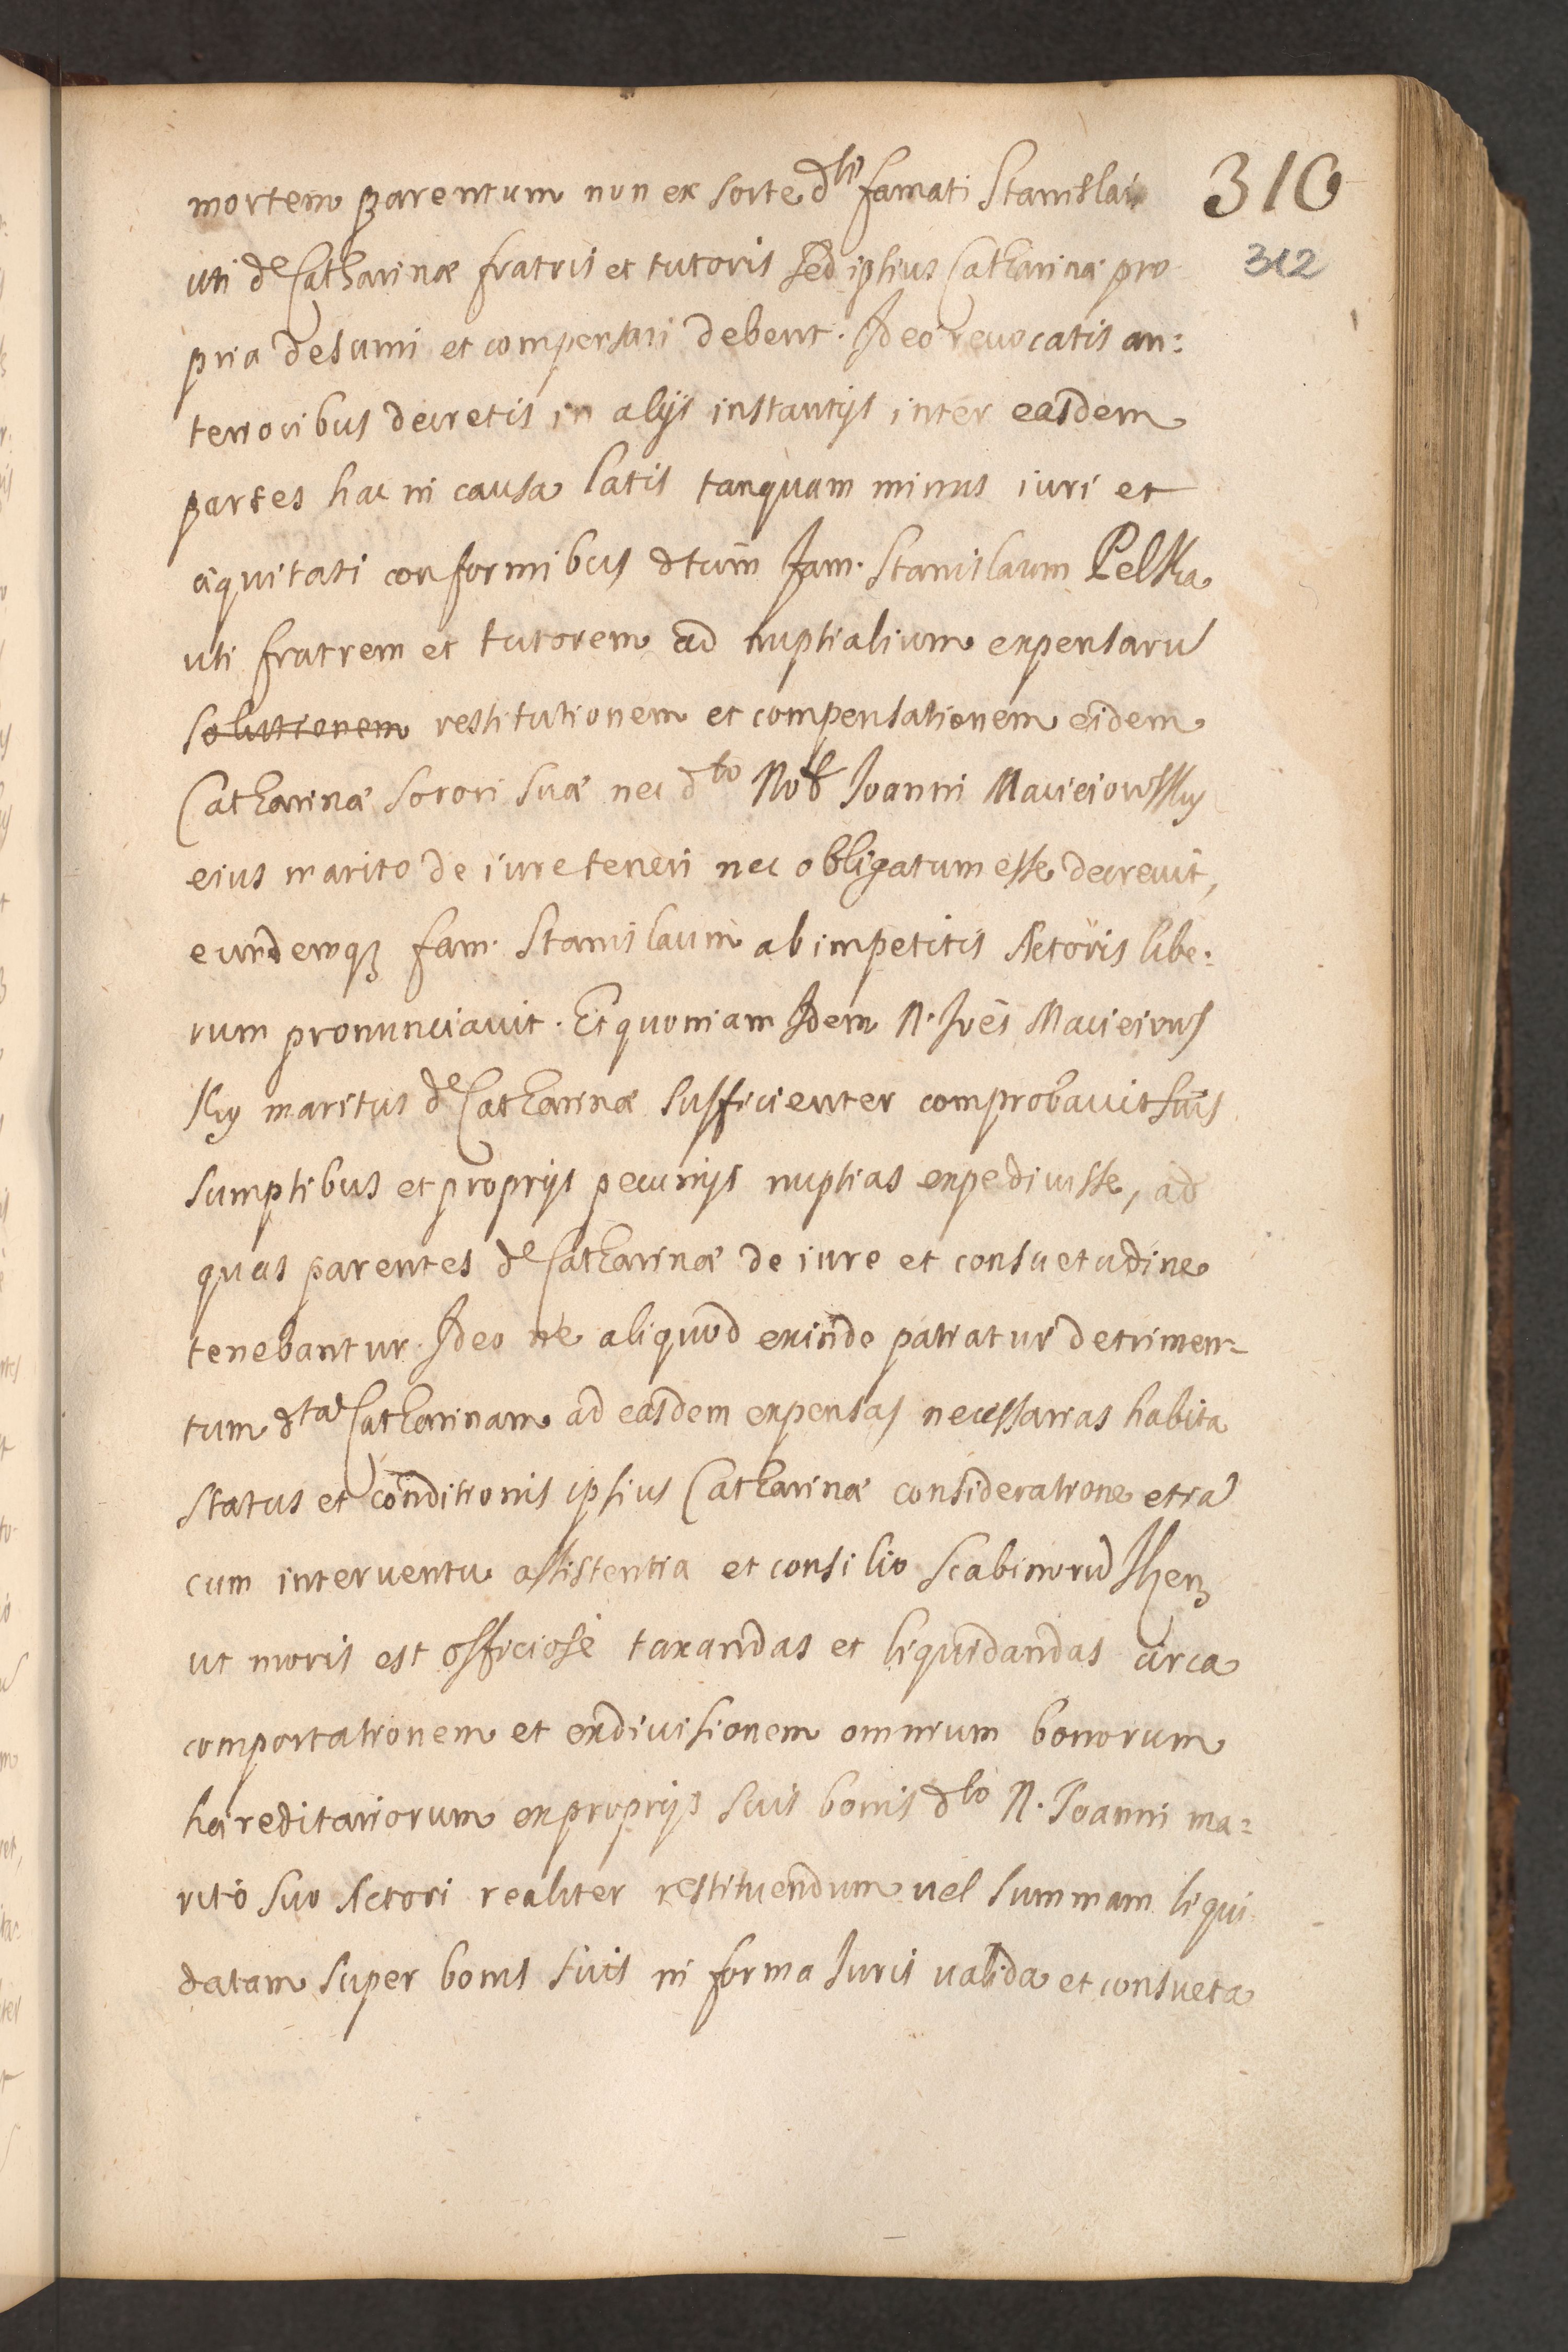 310
312
mortem parentum non ex sorte dti famati Stanislai
uti de Catharinæ fratris et tutoris sed ipsius Catharinæ pro
pria desumi et compensari debent. Ideo reuocatis an:
terioribus decretis in alijs instantijs inter easdem
partes hac in causa latis tanquam minus iuri et
æquitati conformibus dtum fam. Stanislaum Pelka
uti fratrem et tutorem ad nuptialium expensaru
solutionem restitutionem et compensationem eidem
Catharinæ sorori suæ nec dto Nob Joanni Macieiowsky
eius marito de iure teneri nec obligatum esse decreuit,
eundemq fam. Stanislaum ab impetitis Actoris libe:
rum pronunciauit. Et quoniam Idem N. Joes Macieiows
ky maritus de Catharinæ sufficienter comprobauit suis
sumptibus et proprijs pecunijs nuptias expediuisse, ad
quas parentes de Catharinæ de iure et consuetudine
tenebantur. Ideo ne aliquod exinde patiatur detrimen=
tum dta Catharinam ad easdem expensas necessarias habita
status et conditionis ipsius Catharinæ consideratione etia
cum interuentu assistentia et consilio Scabinoru
ut moris est officiose taxandas et liquidandas circa
comportationem et exdiuisionem omnium bonorum
hæreditariorum ex proprijs suis bonis dto N. Joanni ma=
rito suo Actori realiter restituendum uel summam liqui
datam super bonis suis in forma Iuris ualida et consueta